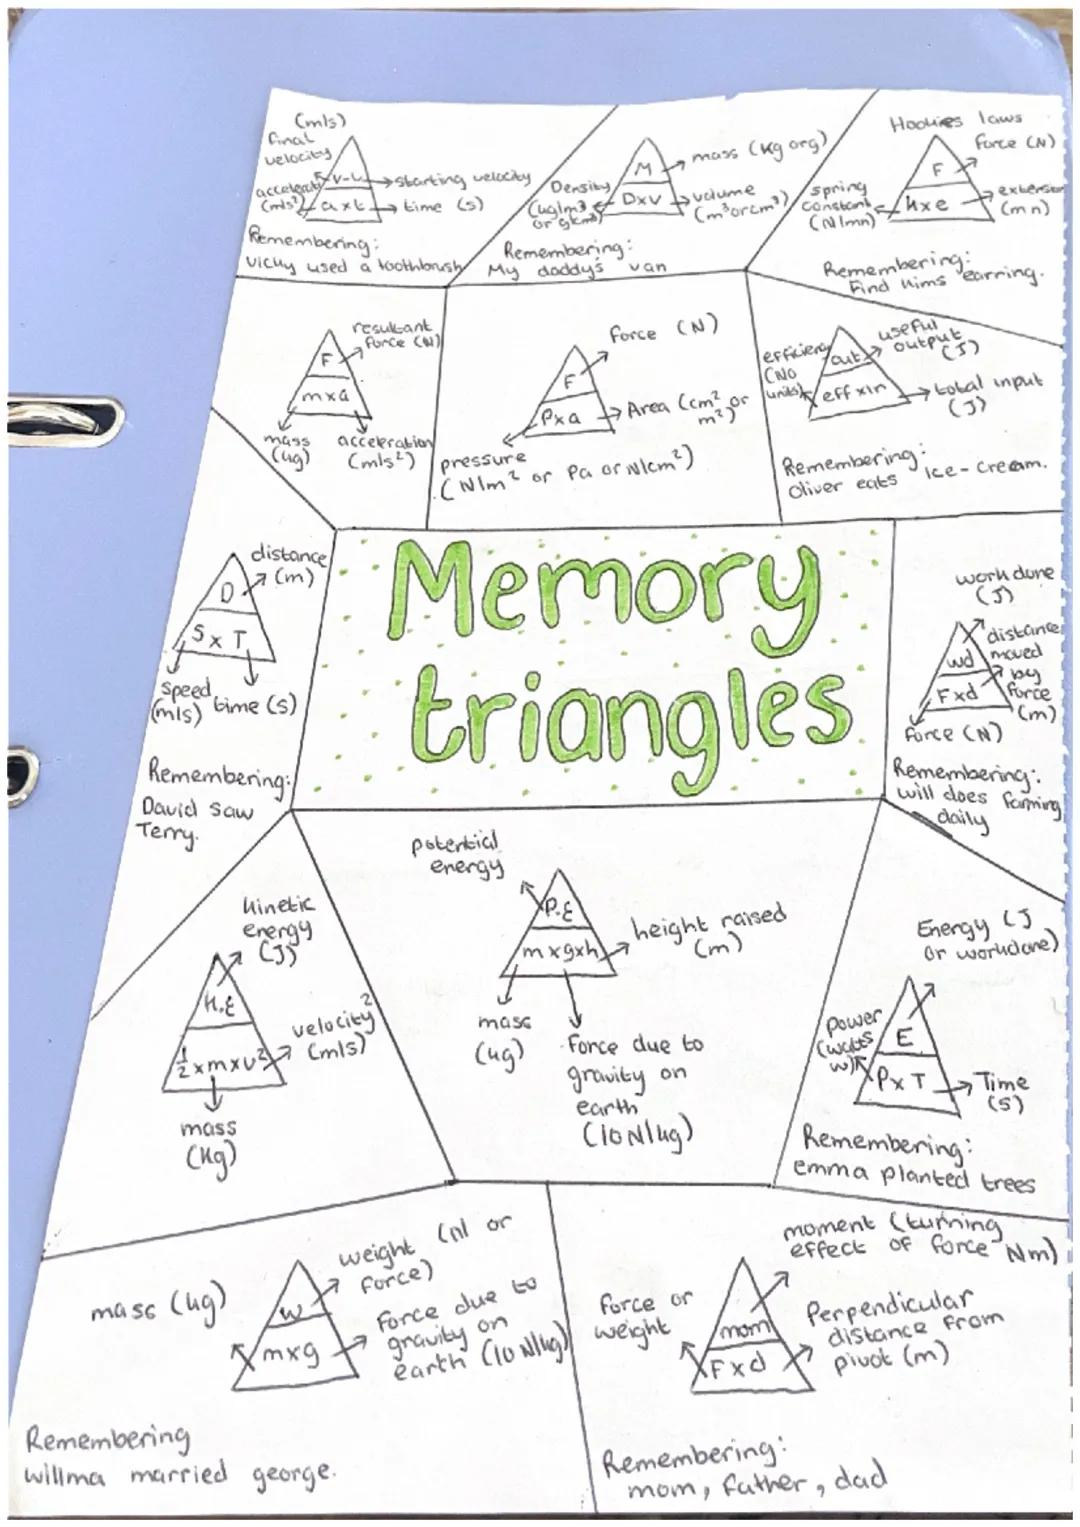 (m/s)
final
velocity
v-u
starting velocity
(m/s²)
a x t
time (s)
Remembering:
vicky used a toothbrush
M
mass (kg or g)
Density
(kg/m³
or g/cm³)
D x v
volume
(m³ or cm³)
Remembering:
My daddy's van
Hookies laws
force (N)
F
spring
constant
(N/mn)
k x e
extension
(mn)
Remembering:
Find kims earring.
resultant
force (N)
F
m x a
mass
(kg)
acceleration
(m/s²)
force (N)
F
P x a
Area (cm² or
m²)
pressure
(N/m² or Pa or N/cm²)
efficiency
(NO
units)
out
useful
output
(J)
eff x in
total input
(J)
Remembering:
Oliver eats ice-cream.
distance
(m)
D
S x T
speed
(m/s)
time (s)
Remembering:
David saw
Terry.
Memory
triangles
work done
(J)
wd
F x d
distance
moved
by
force
(m)
force (N)
Remembering:
will does farming
daily
kinetic
energy
(J)
k.E
½ x m x v²
velocity²
(m/s)
mass
(kg)
potential
energy
P.E
m x g x h
height raised
(m)
mass
(kg)
force due to
gravity on
earth
(10 N/kg)
Energy (J
or workdone)
power
(watts
w)
E
P x T
Time
(s)
Remembering:
emma planted trees
mass (kg)
weight (N or
force)
w
m x g
force due to
gravity on
earth (10 N/kg)
Remembering
willma married george.
moment (turning
effect of force Nm)
force or
weight
mom
F x d
Perpendicular
distance from
pivot (m)
Remembering:
mom, father, dad